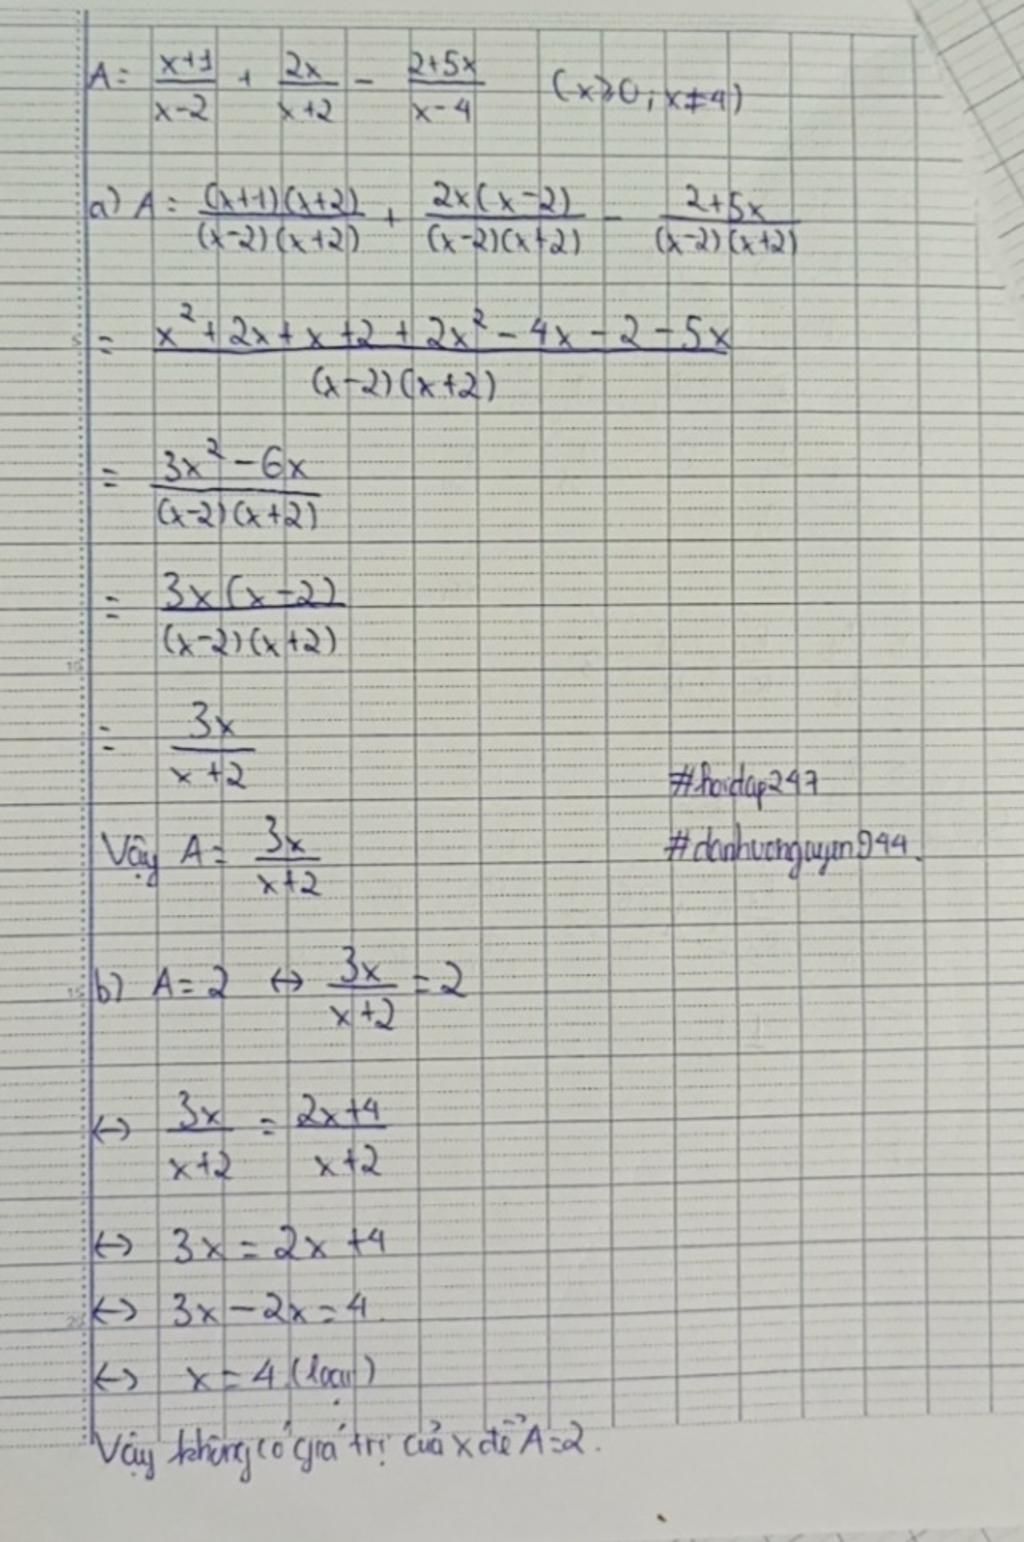 A = \frac{x+1}{x-2} + \frac{2x}{x+2} - \frac{2+5x}{x-4} (x≥0; x≠4)
a) A = \frac{(x+1)(x+2)}{(x-2)(x+2)} + \frac{2x(x-2)}{(x-2)(x+2)} - \frac{2+5x}{(x-2)(x+2)}
= \frac{x^2+2x+x+2+2x^2-4x-2-5x}{(x-2)(x+2)}
= \frac{3x^2-6x}{(x-2)(x+2)}
= \frac{3x(x-2)}{(x-2)(x+2)}
= \frac{3x}{x+2}
#hoidap247
Vậy A = \frac{3x}{x+2}
b) A = 2 ↔ \frac{3x}{x+2} = 2
↔ \frac{3x}{x+2} = \frac{2x+4}{x+2}
↔ 3x = 2x + 4
↔ 3x - 2x = 4
↔ x = 4 (loại)
Vậy không có giá trị của x để A=2.